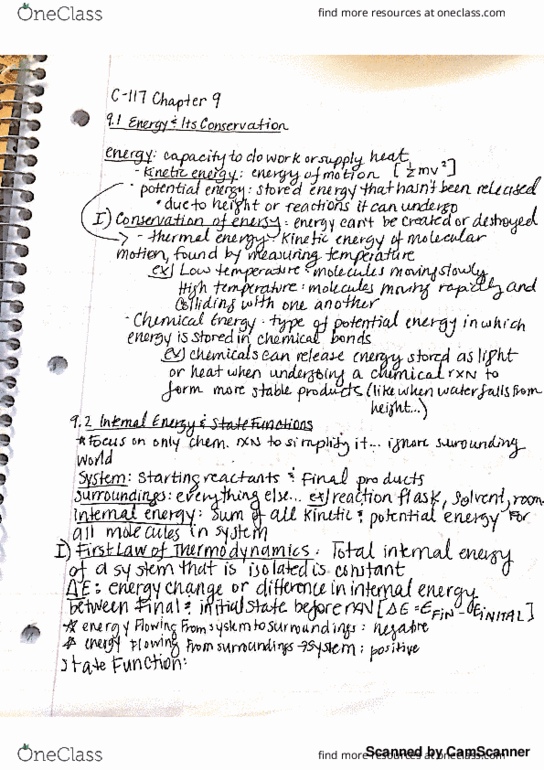 OneClass
find more resources at oneclass.com
C-117 Chapter 9
9.1 Energy & Its Conservation
energy: capacity to do work or supply heat
- Kinetic energy: energy of motion [½mv²]
· potential energy: stored energy that hasn't been released
• due to height or reactions it can undergo
I) Conservation of energy: energy can't be created or destroyed
→ - thermal energy: kinetic energy of molecular
motion, found by measuring temperature
ex) Low temperature: molecules moving slowly
High temperature: molecules moving rapidly and
colliding with one another
- Chemical Energy: type of potential energy in which
energy is stored in chemical bonds
ex) chemicals can release energy stored as light
or heat when undergoing a chemical rxN to
form more stable products (like when water falls from
height...)
9.2 Internal Energy & State Functions
*Focus on only chem. rxN to simplify it... ignore surrounding
world
System: Starting reactants & Final products
Surroundings: everything else... ex) reaction flask, solvent, room
Internal energy: sum of all kinetic & potential energy for
all molecules in system
I) First Law of Thermodynamics: Total internal energy
of a system that is isolated is constant
ΔE: energy change or difference in internal energy
between Final & initial state before rxN [ΔE = EFIN - EINITAL]
* energy flowing from system to surroundings: negative
* energy flowing from surroundings → system: positive
State Function:
OneClass
find more resources at oneclass.com
Scanned by CamScanner